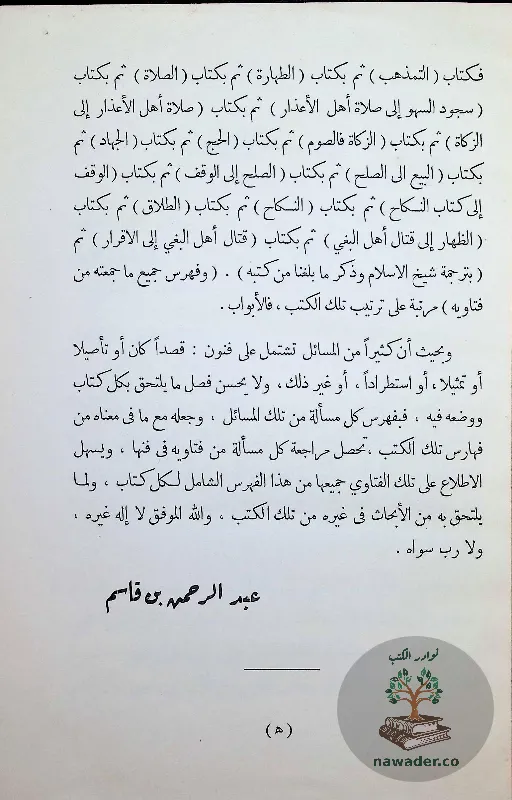 فكتاب ( التمذهب ) ثم بكتاب ( الطهارة ) ثم بكتاب ( الصلاة ) ثم بكتاب
( سجود السهو إلى صلاة أهل الأعذار ) ثم بكتاب ( صلاة أهل الأعذار إلى
الزكاة ) ثم بكتاب ( الزكاة فالصوم ) ثم بكتاب ( الحج ) ثم بكتاب ( الجهاد ) ثم
بكتاب ( البيع الى الصلح ) ثم بكتاب ( الصلح إلى الوقف ) ثم بكتاب ( الوقف
إلى كتاب النكاح ) ثم بكتاب ( النكاح ) ثم بكتاب ( الطلاق ) ثم بكتاب
( الظهار إلى قتال أهل البغي ) ثم بكتاب ( قتال أهل البغي إلى الاقرار ) ثم
( بترجمة شيخ الاسلام وذكر ما بلغنا من كتبه ) . ( وفهرس جميع ما جمعته من
فتاويه ) مرتبة على ترتيب تلك الكتب ، فالأبواب .
وبحيث أن كثيراً من المسائل تشتمل على فنون : قصداً كان أو تأصيلا
أو تمثيلا ، أو استطراداً ، أو غير ذلك ، ولا يحسن فصل ما يلتحق بكل كتاب
ووضعه فيه ، فبفهرس كل مسألة من تلك المسائل ، وجعله مع ما فى معناه من
فهارس تلك الكتب ، تحصل مراجعة كل مسألة من فتاويه فى فنها ، ويسهل
الاطلاع على تلك الفتاوي جميعها من هذا الفهرس الشامل لكل كتاب ، ولما
يلتحق به من الأبحاث فى غيره من تلك الكتب ، والله الموفق لا إله غيره ،
ولا رب سواه .
عبد الرحمن بن قاسم
( ه )
نوادر الكتب
nawader.co